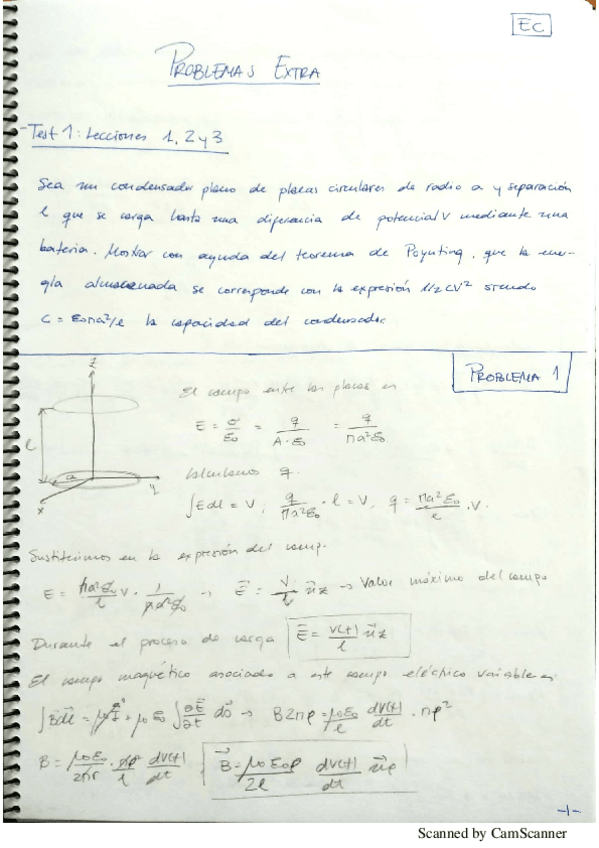 EC
PROBLEMAS EXTRA
-Test 1: Lecciones 1, 2 y 3
Sea un condensador plano de placas circulares de radio a y separación
l que se carga hasta una diferencia de potencial V mediante una
batería. Mostrar con ayuda del teorema de Poynting, que la ener-
gía almacenada se corresponde con la expresión 1/2 CV² siendo
C = ε₀πa²/l la capacidad del condensador.
PROBLEMA 1
z
l
a
x
y
El campo entre las placas es
E = σ/ε₀ = q/(A·ε₀) = q/(πa²ε₀)
Calculamos q.
∫Edl = V, q/(πa²ε₀) · l = V, q = (πa²ε₀/l) · V.
Sustituimos en la expresión del campo.
E = (πa²ε₀/l) V · 1/(πa²ε₀) → E⃗ = (V/l) u⃗z → Valor máximo del campo
Durante el proceso de carga E⃗ = (V(t)/l) u⃗z
El campo magnético asociado a este campo eléctrico variable es:
∫B⃗dl⃗ = μ₀I + μ₀ε₀ ∫(∂E⃗/∂t) ds⃗ → B2πρ = (μ₀ε₀/l) (dV(t)/dt) · πρ²
B = (μ₀ε₀/2πr) · (πρ²/l) (dV(t)/dt)
B⃗ = (μ₀ε₀ρ/2l) (dV(t)/dt) u⃗φ
-1-
Scanned by CamScanner